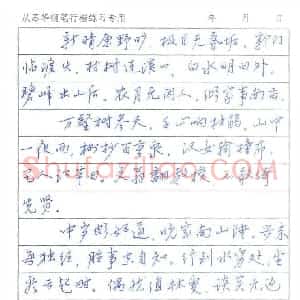 从苏华硬笔行楷练习专用 年 月 日
新晴原野旷，极目无氛垢，郭门
临渡头，村树连溪口，白水明田外，
碧峰出山后，农月无闲人，倾家事南亩。
万壑树参天，千山响杜鹃，山中
一夜雨，树杪百重泉，汉女输橦布，
巴人讼芋田，文翁翻教授，不敢倚
先贤。
中岁颇好道，晚家南山陲，兴来
每独往，胜事空自知，行到水穷处，坐
看云起时，偶然值林叟，谈笑无还
Shufaziliao.com